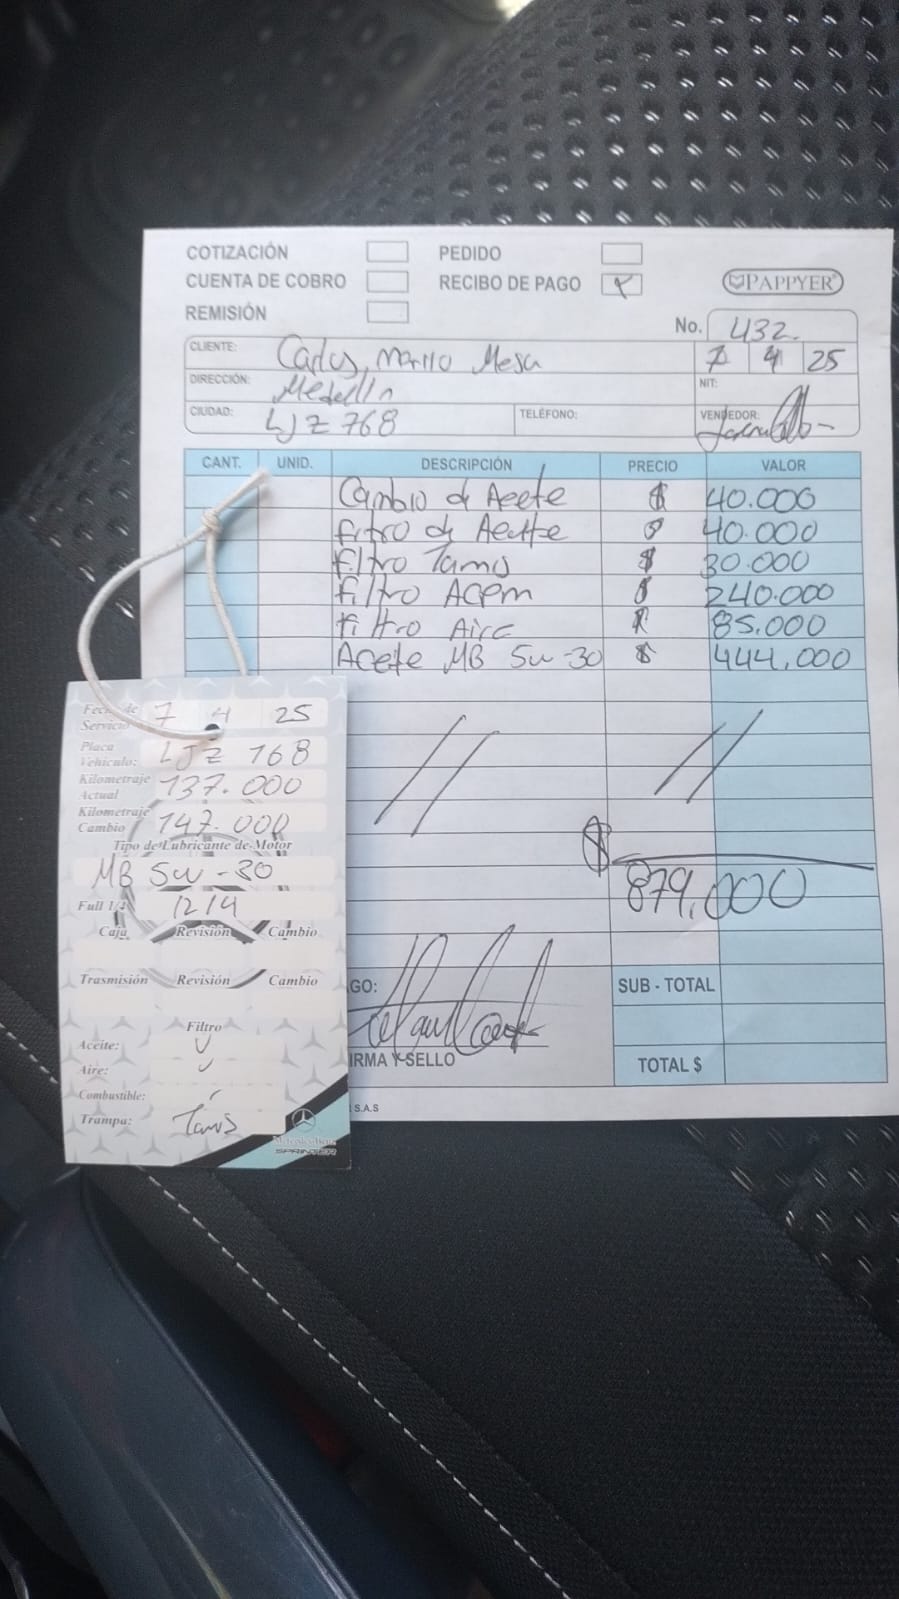 COTIZACIÓN
PEDIDO
CUENTA DE COBRO
RECIBO DE PAGO X
PAPPYER
REMISIÓN
No. 432.
CLIENTE: Carlos, Mesa
7 4 25
DIRECCIÓN: Medellin
NIT:
CIUDAD: LJZ 768
TELÉFONO:
VENDEDOR:
CANT. UNID. DESCRIPCIÓN PRECIO VALOR
Cambio d Aceete $ 40.000
filtro d Aceite $ 40.000
filtro Tamis $ 30.000
filtro Acpm $ 240.000
filtro Aire $ 85.000
Aceite MB 5w-30 $ 444,000
$ 879,000
GO:
SUB - TOTAL
IRMA Y SELLO
TOTAL $
S.A.S
Fecha de Servicio 7 4 25
Placa Vehículo: LJZ 768
Kilometraje Actual 137.000
Kilometraje Cambio 147.000
Tipo de Lubricante de Motor
MB 5w-30
Full 1/4 12/4
Caja Revisión Cambio
Trasmisión Revisión Cambio
Filtro
Aceite:
Aire:
Combustible:
Trampa: Tamis
Mercedes-Benz
SPRINTER